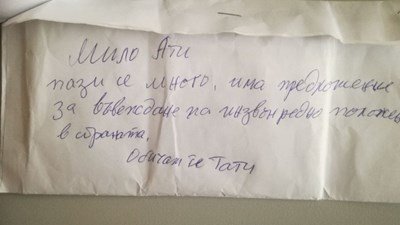 Мило Ати
пази се много, има предложение
за въвеждане на извънредно положен
в страната.
Обичам те Тати